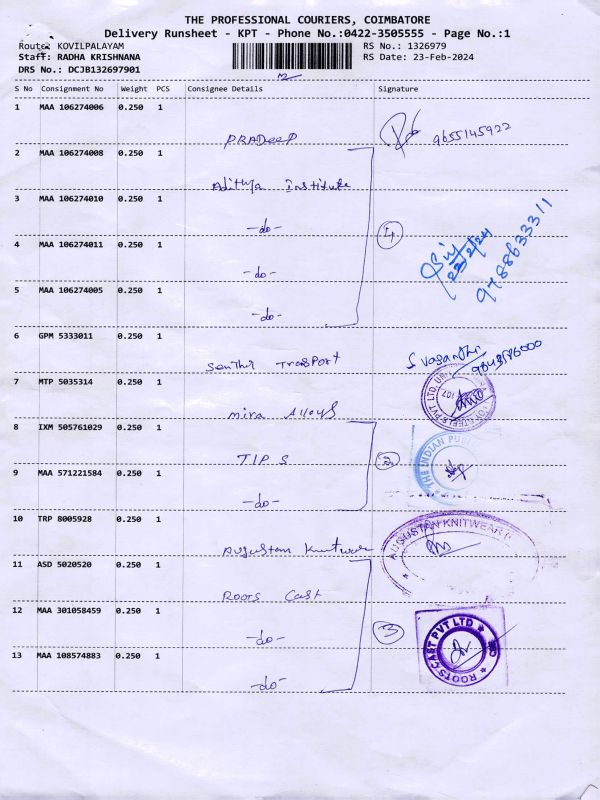 THE PROFESSIONAL COURIERS, COIMBATORE
Delivery Runsheet - KPT - Phone No.:0422-3505555 - Page No.:1
Route: KOVILPALAYAM RS No.: 1326979
Staff: RADHA KRISHNANA RS Date: 23-Feb-2024
DRS No.: DCJB132697901
S No Consignment No Weight PCS Consignee Details Signature
1 MAA 106274006 0.250 1
PRADeeP 9655145922
2 MAA 106274008 0.250 1
Adithya Institute
3 MAA 106274010 0.250 1
-do-
4 MAA 106274011 0.250 1
-do-
4
23/2/24
9788633311
5 MAA 106274005 0.250 1
-do-
6 GPM 5333011 0.250 1
Senthil Transport S Vasanthi
7 MTP 5035314 0.250 1
mira Alloys
8 IXM 505761029 0.250 1
TIPS
2
THE INDIAN PUBLIC
9 MAA 571221584 0.250 1
-do-
10 TRP 8005928 0.250 1
Augustan Knitwear
AUGUSTAN KNITWEAR
11 ASD 5020520 0.250 1
Roots Cast
12 MAA 301058459 0.250 1
-do-
3
ROOTS CAST PVT LTD
13 MAA 108574883 0.250 1
-do-